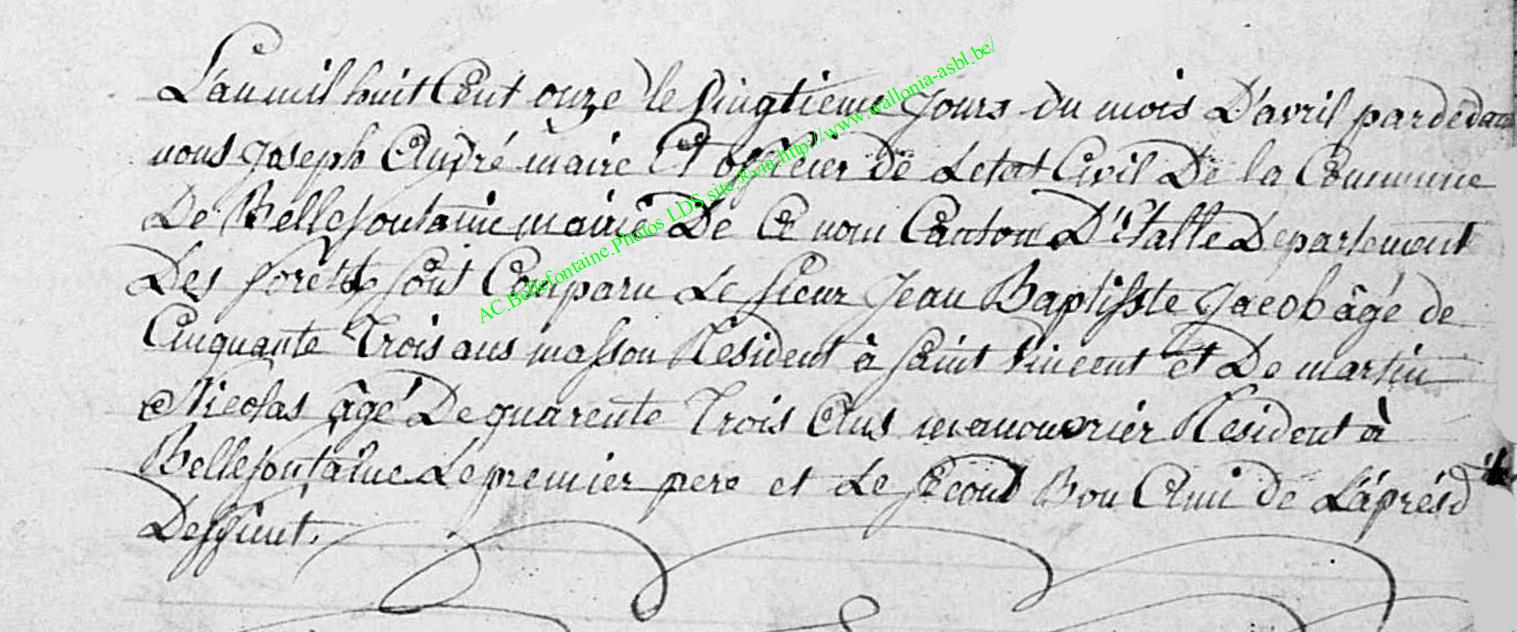 L'an mil huit Cent onze le vingtieme Jours du mois D'avril pardedant
nous Joseph André maire Et officier De Letat Civil De la Commune
De Bellefontaine mairie De Ce nom Canton D'Etalle Departement
Des forêts sont Comparu Le sieur Jean Baptisste Jacob âgé de
Cinquante Trois ans masson Resident à saint Vincent et De martin
Nicolas âgé De quarente Trois Ans manouvrier Resident à
Bellefontaine Le premier pere et Le second Bon Ami de L'aprés d
Deffunt.
AC.Bellefontaine.Photos LDS site &via http://www.wallonia-asbl.be/